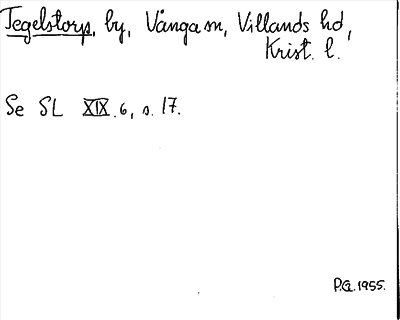 Tegelstorp, by, Vånga sn, Villands hd,
Krist. l.
Se SL XIX.6, s. 17.
P.G.1955.